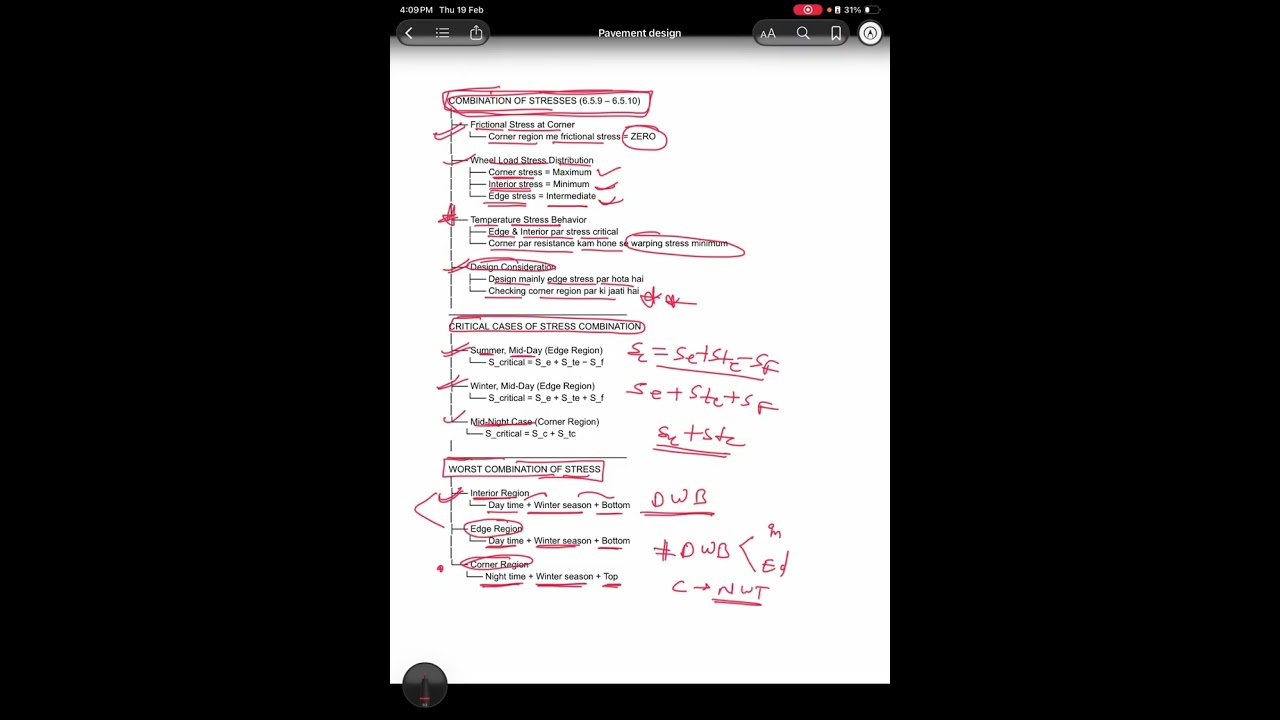 4:09 PM Thu 19 Feb
31%
Pavement design
AA
COMBINATION OF STRESSES (6.5.9 – 6.5.10)
Frictional Stress at Corner
Corner region me frictional stress = ZERO
Wheel Load Stress Distribution
Corner stress = Maximum
Interior stress = Minimum
Edge stress = Intermediate
Temperature Stress Behavior
Edge & Interior par stress critical
Corner par resistance kam hone se warping stress minimum
Design Consideration
Design mainly edge stress par hota hai
Checking corner region par ki jaati hai
CRITICAL CASES OF STRESS COMBINATION
Summer, Mid-Day (Edge Region)
S_critical = S_e + S_te − S_f
Winter, Mid-Day (Edge Region)
S_critical = S_e + S_te + S_f
Se + Ste + SF
Mid-Night Case (Corner Region)
S_critical = S_c + S_tc
WORST COMBINATION OF STRESS
Interior Region
Day time + Winter season + Bottom
DWB
Edge Region
Day time + Winter season + Bottom
# DWB
Corner Region
Night time + Winter season + Top
C → NWT